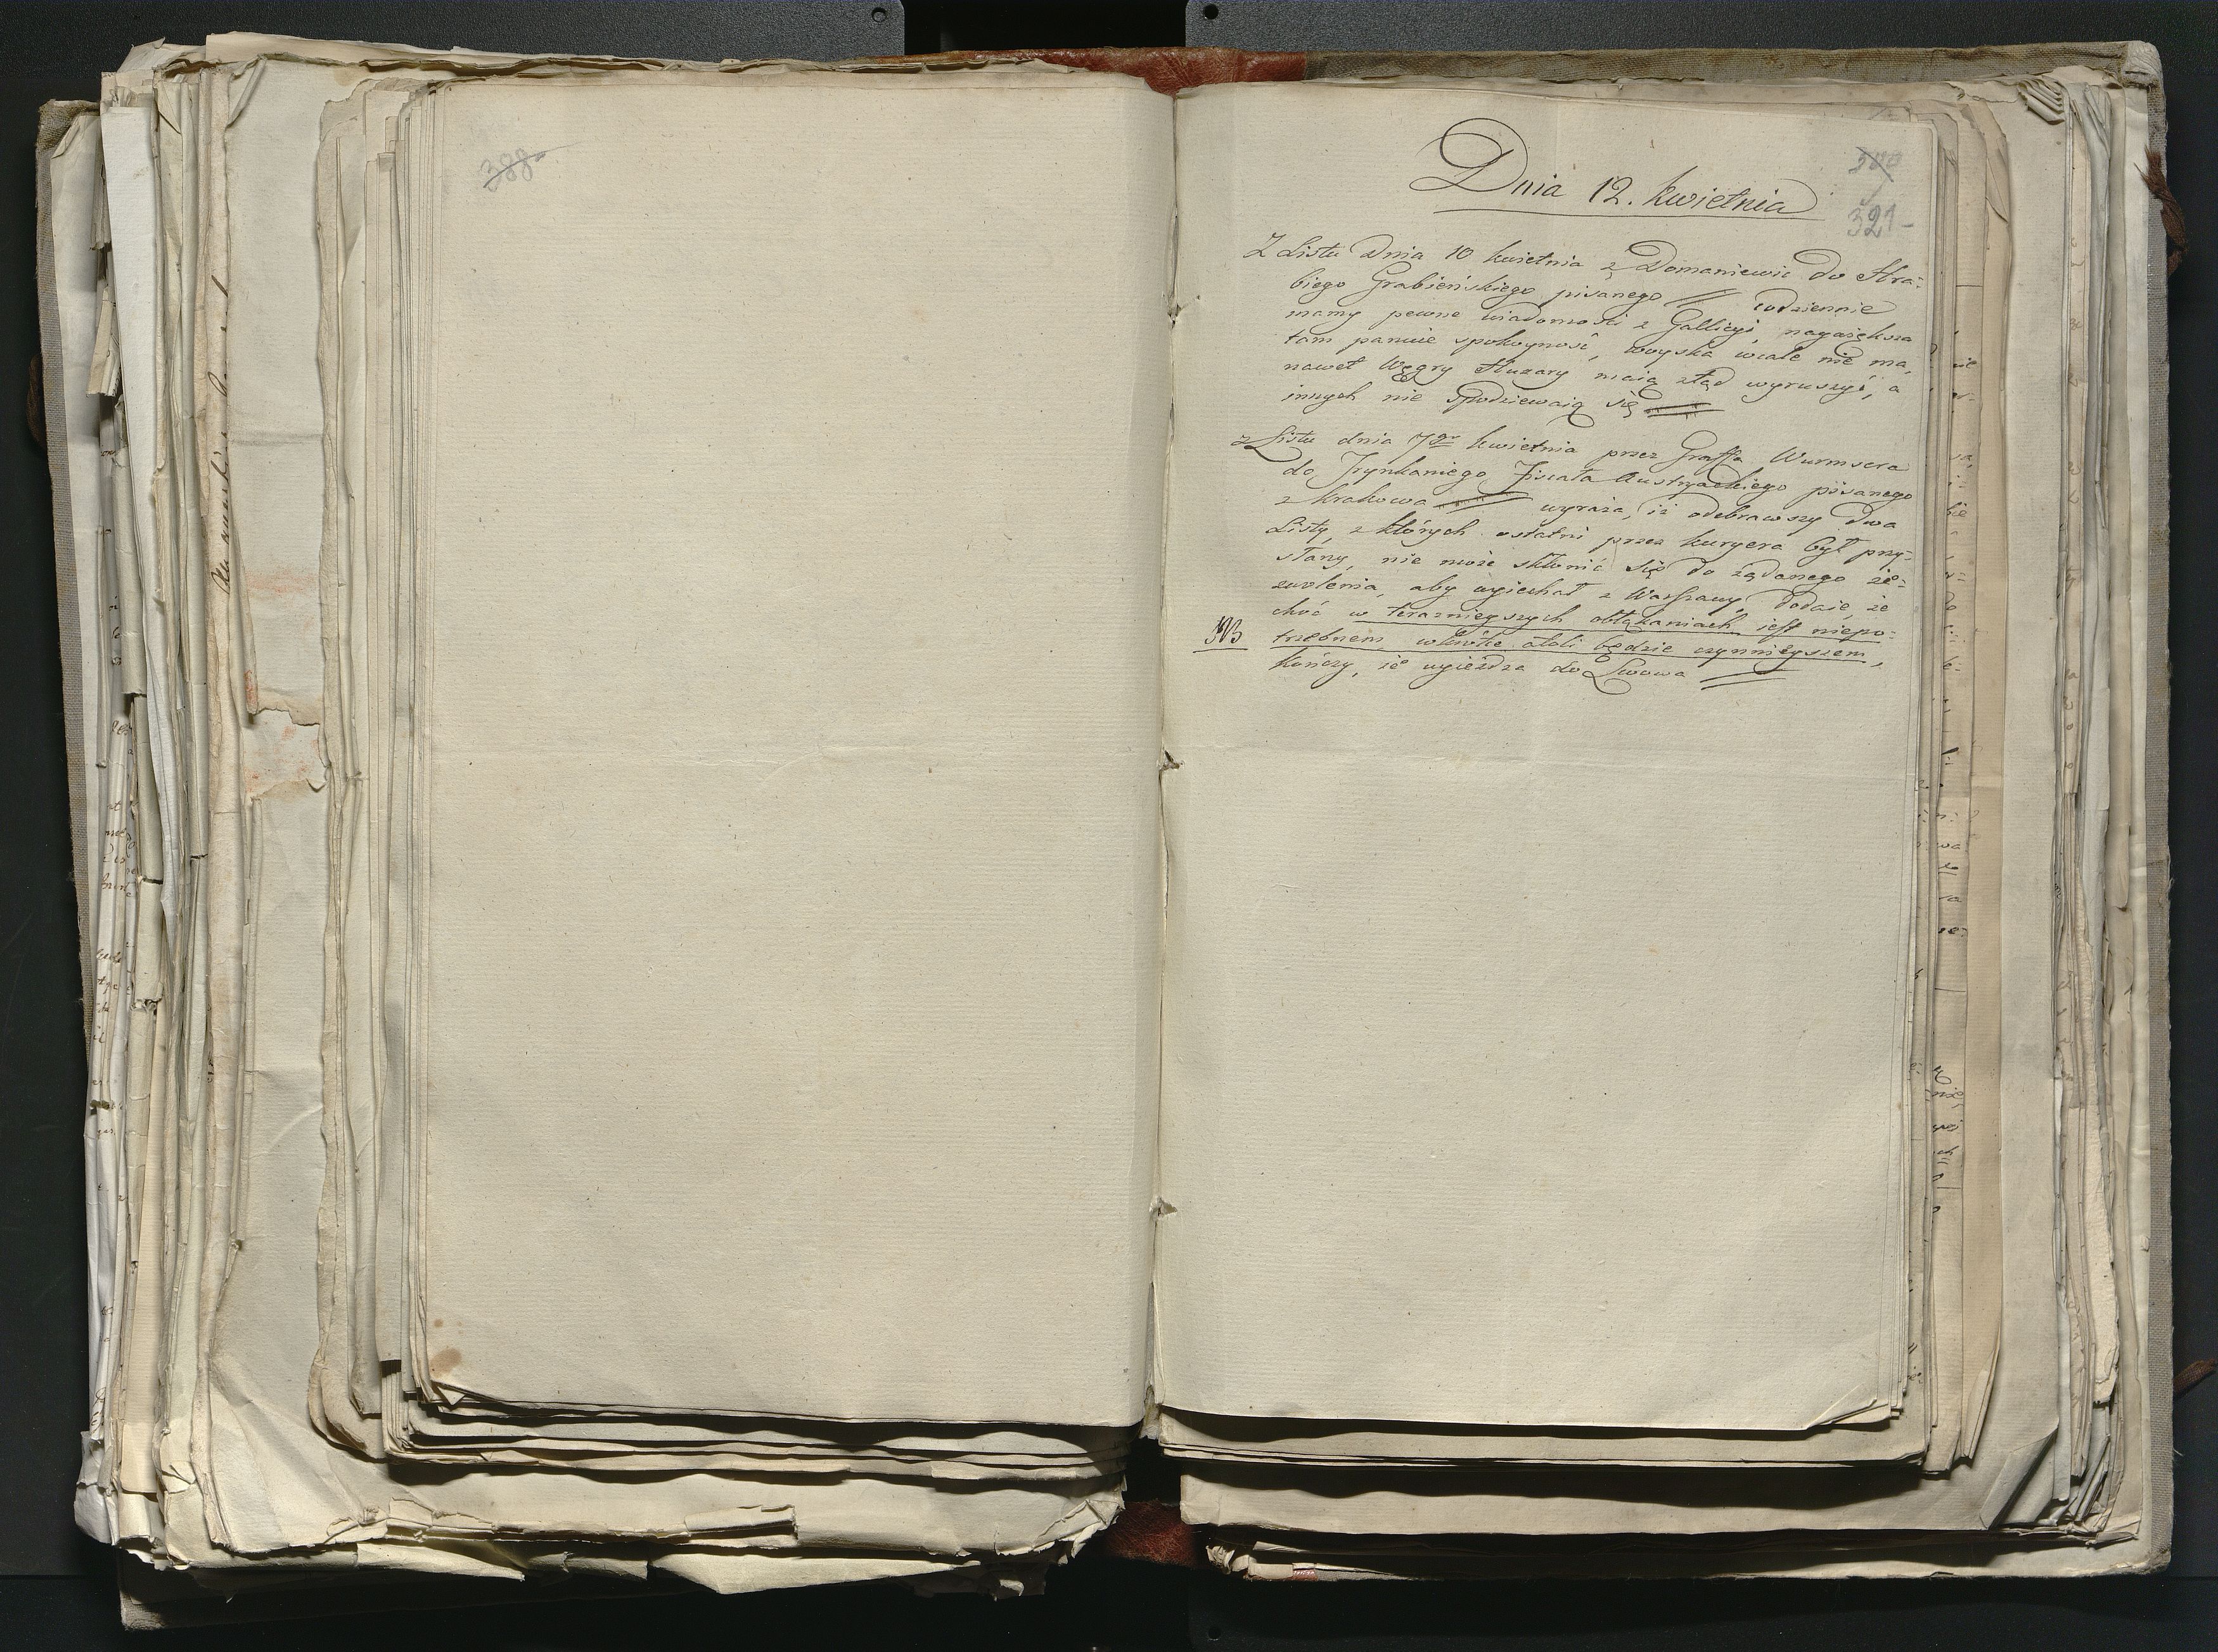 388
Dnia 12. kwietnia
321
Z Listu Dnia 10 kwietnia z Domaniewic do Hra-
biego Grabieńskiego pisanego // codziennie
mamy pewne wiadomości z Gallicyi, naywiększa
tam panuie spokoyność, woyska wcale nie ma,
nawet Węgry Huzary maią ztąd wyruszyć, a
innych nie spodziewaią się //
z Listu dnia 7go kwietnia przez Graffa Wurmsera
do Fiscała Austryackiego pisanego
z Krakowa // wyraża, iż odebrawszy dwa
Listy, z których ostatni przez kuryera był przy-
słany, nie może skłonić się do żądanego ze-
zwolenia, aby wyiechał z Warszawy, dodaie, że
choć w teraznieyszych obłąkaniach iest niepo-
NB trzebnem, wkrótce atoli będzie czynnieyszem,
kończy, że wyieżdza do Lwowa //